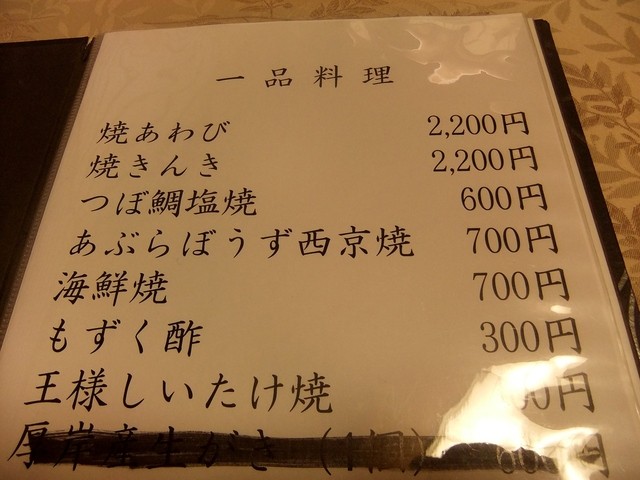 一品料理
焼あわび 2,200円
焼きんき 2,200円
つぼ鯛塩焼 600円
あぶらぼうず西京焼 700円
海鮮焼 700円
もずく酢 300円
王様しいたけ焼 00円
厚岸産生がき（1個） 600円